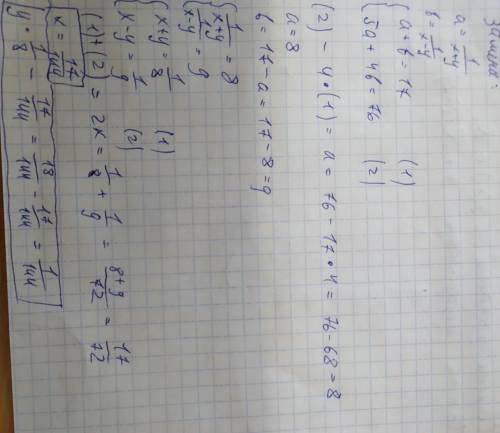 Замена:
a = 1/(x+y)
b = 1/(x-y)
{ a + b = 17 (1)
{ 5a + 4b = 76 (2)
(2) - 4·(1) = a = 76 - 17·4 = 76 - 68 = 8
a = 8
b = 17 - a = 17 - 8 = 9
{ 1/(x+y) = 8
{ 1/(x-y) = 9
{ x+y = 1/8 (1)
{ x-y = 1/9 (2)
(1)+(2) = 2x = 1/8 + 1/9 = (8+9)/72 = 17/72
x = 17/144
y = 1/8 - 17/144 = 18/144 - 17/144 = 1/144